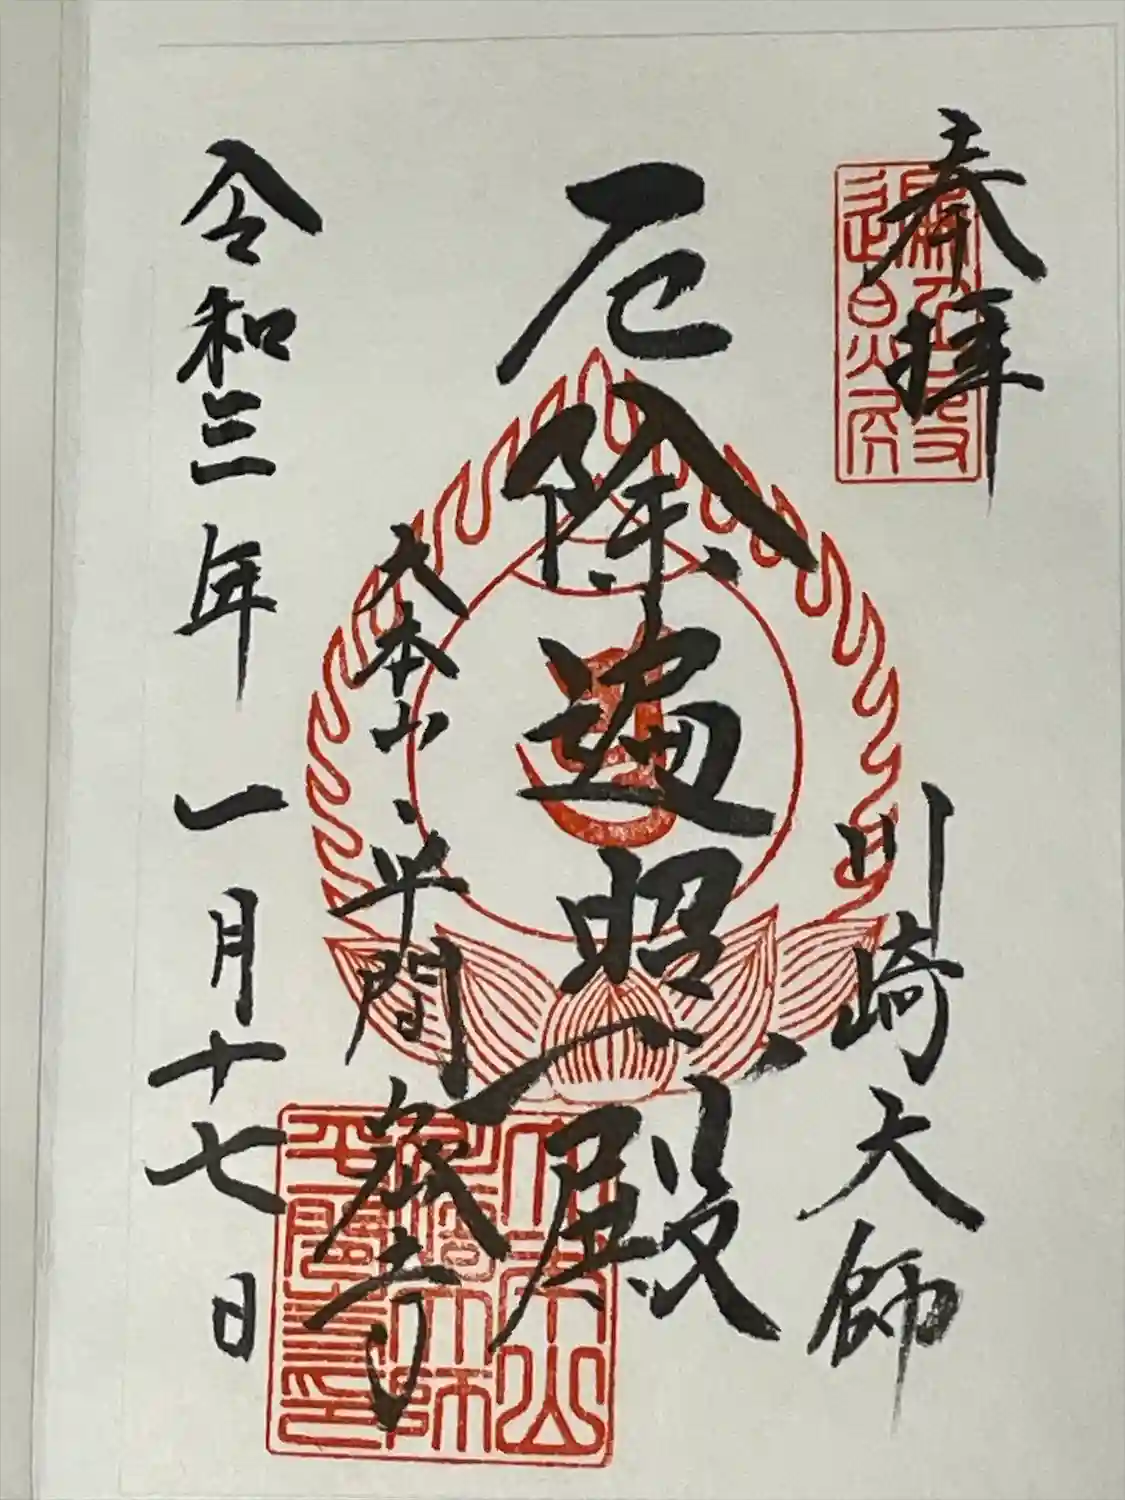 奉拝
川崎大師
厄除遍照殿
大本山平間寺
令和三年一月十七日